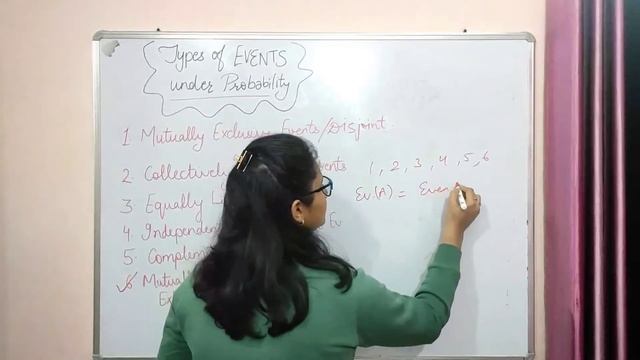 Types of EVENTS
under Probability
1. Mutually Exclusive Events/Disjoint
2. Collectively
3. Equally
4. Independen Ev
5. Complem
6 Mutual
Ex
1, 2, 3, 4, 5, 6
Ev.(A) = Even